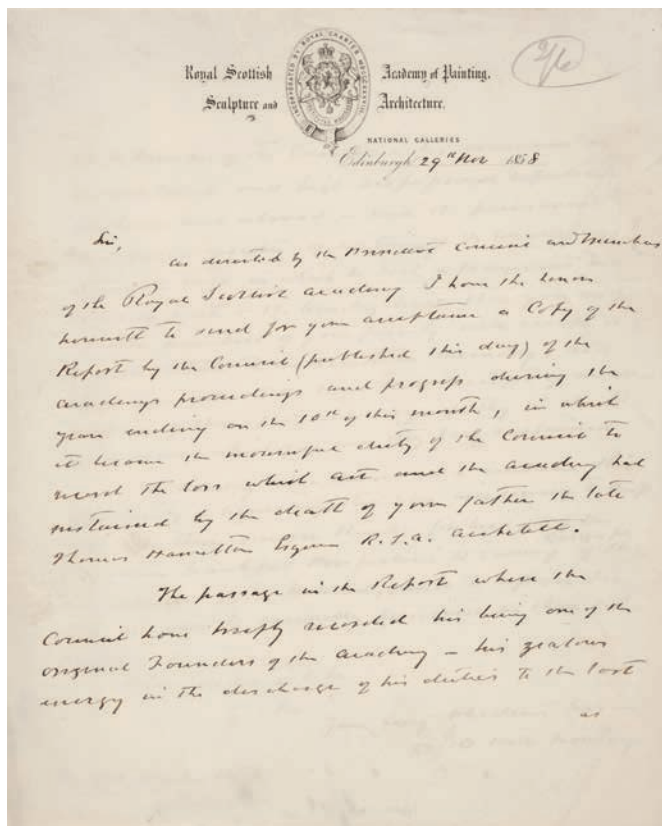 Royal Scottish Academy of Painting,
Sculpture and Architecture.
INCORPORATED BY ROYAL CHARTER
NATIONAL GALLERIES
Edinburgh 29th Nov 1858
Sir,
as directed by the President Council and Members
of the Royal Scottish Academy I have the honor
herewith to send for your acceptance a Copy of the
Report by the Council (published this day) of the
academys proceedings and progress during the
year ending on the 10th of this month, in which
it became the mournful duty of the Council to
record the loss which art and the academy had
sustained by the death of your father the late
Thomas Hamilton Esquire R.S.A. Architect.
The passage in the Report where the
Council have briefly recorded his being one of the
original Founders of the Academy – his zealous
energy in the discharge of his duties to the last
as